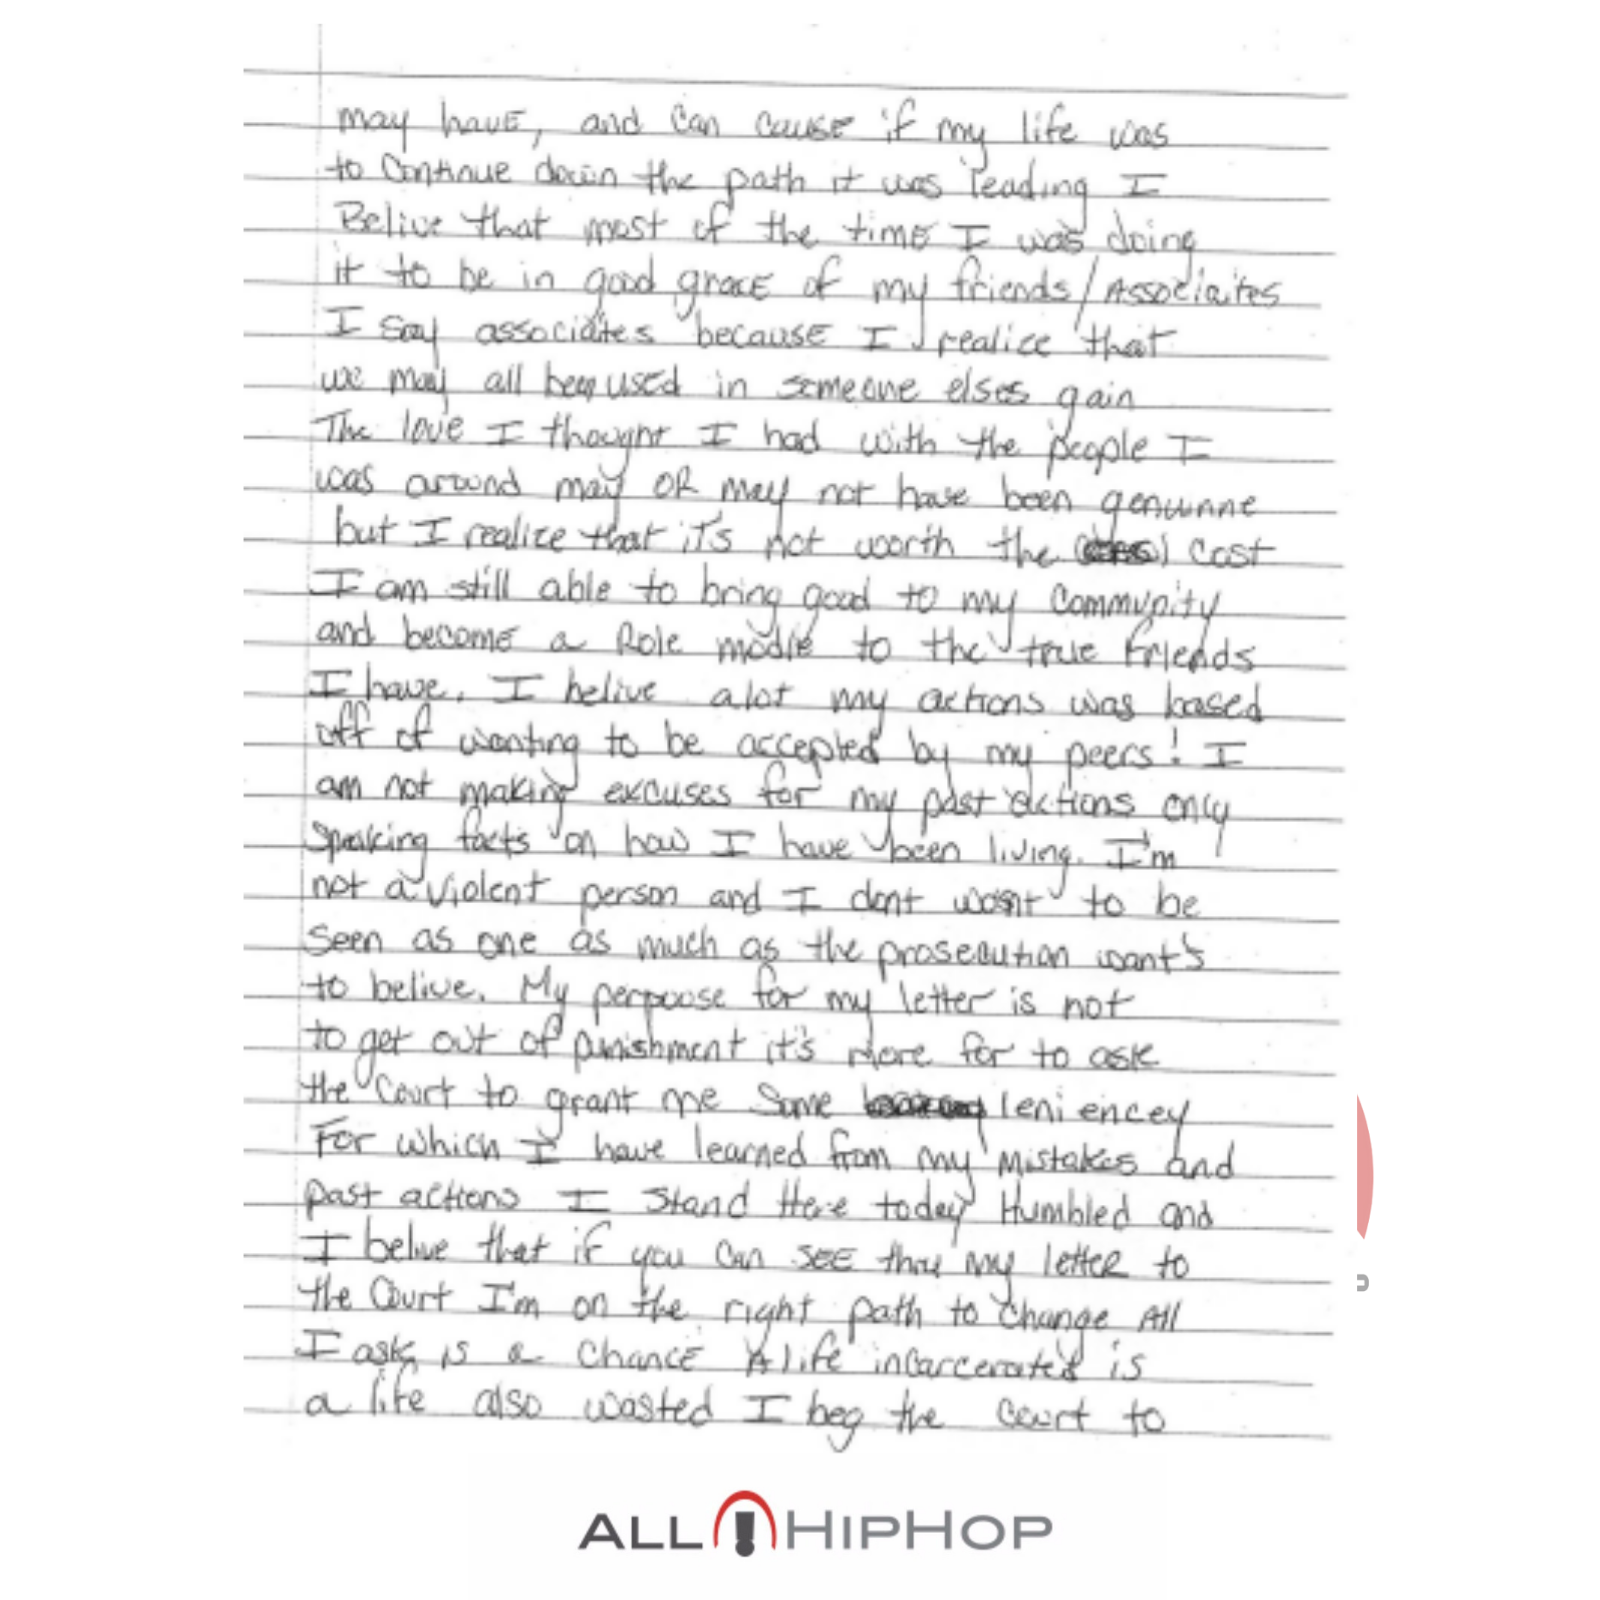 may have, and can cause if my life was
to Continue down the path it was leading I
Belive that most of the time I was doing
it to be in good grace of my friends/Associaites
I say associates because I realice that
we may all been used in someone elses gain
The love I thought I had with the people I
was around may OR may not have been genuinne
but I realize that it's not worth the cost
I am still able to bring good to my Community
and become a Role modle to the true friends
I have. I belive alot my actions was based
off of wanting to be accepted by my peers! I
am not making excuses for my past actions only
speaking facts on how I have been living. I'm
not a violent person and I dont want to be
seen as one as much as the prosecution want's
to belive. My perpouse for my letter is not
to get out of punishment it's more for to ask
the Court to grant me some leniencey
For which I have learned from my mistakes and
past actions I stand Here today Humbled and
I belive that if you can see thru my letter to
the Court I'm on the right path to change All
I ask is a chance A life incarcerated is
a life also wasted I beg the court to
ALL HIPHOP